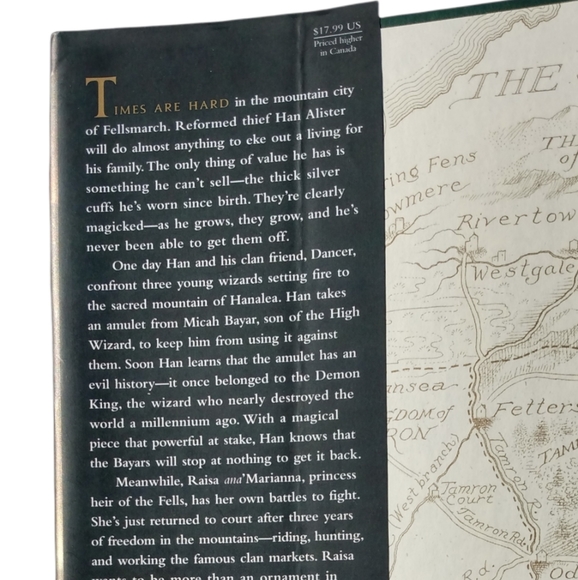 $17.99 US
Priced higher
in Canada
TIMES ARE HARD in the mountain city
of Fellsmarch. Reformed thief Han Alister
will do almost anything to eke out a living for
his family. The only thing of value he has is
something he can't sell—the thick silver
cuffs he's worn since birth. They're clearly
magicked—as he grows, they grow, and he's
never been able to get them off.
One day Han and his clan friend, Dancer,
confront three young wizards setting fire to
the sacred mountain of Hanalea. Han takes
an amulet from Micah Bayar, son of the High
Wizard, to keep him from using it against
them. Soon Han learns that the amulet has an
evil history—it once belonged to the Demon
King, the wizard who nearly destroyed the
world a millennium ago. With a magical
piece that powerful at stake, Han knows that
the Bayars will stop at nothing to get it back.
Meanwhile, Raisa ana'Marianna, princess
heir of the Fells, has her own battles to fight.
She's just returned to court after three years
of freedom in the mountains—riding, hunting,
and working the famous clan markets. Raisa
wants to be more than an ornament in
THE
TH
of
ring Fens
owmere
Rivertow
Westgate
ansea
GDOM of
RON
Fetters
TAM
Tamron R.
(West branch)
Tamron
Court
Tamron Rd.
Rd.
Od